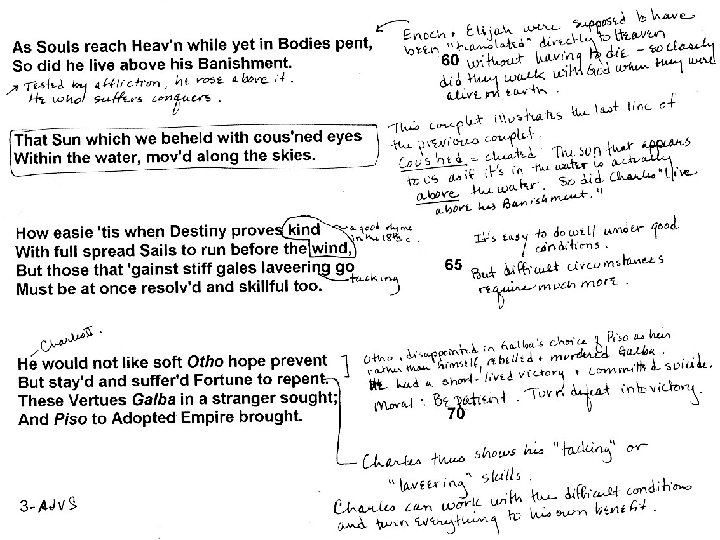 As Souls reach Heav'n while yet in Bodies pent,
So did he live above his Banishment.
Tested by affliction, he rose above it.
He who suffers conquers.
Enoch + Elijah were supposed to have
been "translated" directly to Heaven
60 without having to die - so closely
did they walk with God when they were
alive on earth.
That Sun which we beheld with cous'ned eyes
Within the water, mov'd along the skies.
This couplet illustrates the last line of
the previous couplet.
Cous'ned = cheated. The sun that appears
to us as if it's in the water is actually
above the water. So did Charles "live
above his Banishment."
How easie 'tis when Destiny proves kind
With full spread Sails to run before the wind,
a good rhyme
in the 18th c.
But those that 'gainst stiff gales laveering go
Must be at once resolv'd and skillful too.
tacking
It's easy to do well under good
conditions.
65
But difficult circumstances
require much more.
Charles II.
He would not like soft Otho hope prevent
But stay'd and suffer'd Fortune to repent.
These Vertues Galba in a stranger sought;
And Piso to Adopted Empire brought.
Otho, disappointed in Galba's choice of Piso as heir
rather than himself, rebelled + murdered Galba.
He had a short-lived victory + committed suicide.
Moral: Be patient. Turn defeat into victory.
70
Charles thus shows his "tacking" or
"laveering" skills.
Charles can work with the difficult conditions
and turn everything to his own benefit.
3-AdvS